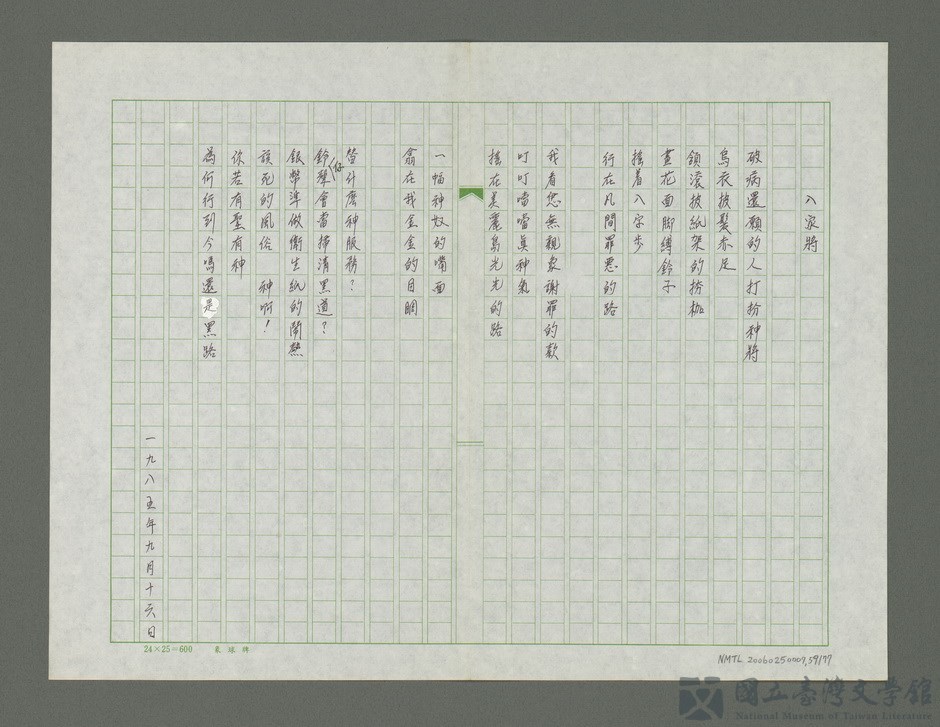 八家將
破病還願的人打扮神將
烏衣披髮赤足
頷滾披紙架的扮枷
畫花面脚縛鈴子
搖着八字步
行在凡間罪惡的路
我看您無親象謝罪的款
叮叮噹噹真神氣
搖在美麗島光光的路
一幅神奴的嘴面
翕在我金金的目睭
您什麼神服務?
鈴聲會當掃清黑道?
銀幣準做衛生紙的鬧熱
該死的風俗 神啊!
你若有聖有神
為何行到今嗎還是黑路
一九八五年九月十六日
24×25=600
NMTL 20060250007,59/77
國立臺灣文學館
National Museum of Taiwan Literature